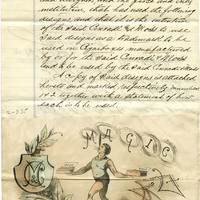 institution, that has used the following
designs and that it is the intention
of the said Conrad & Moss to use
said designs as a Trademark to be
used on Cigarboxes manufactured
by or for the said Conrad & Moss
and to be used by the said Conrad & Moss
A copy of said designs is attached
hereto and marked respectively Numbers
1 & 2 together with a statement of how
each is to be used.
MAGIC